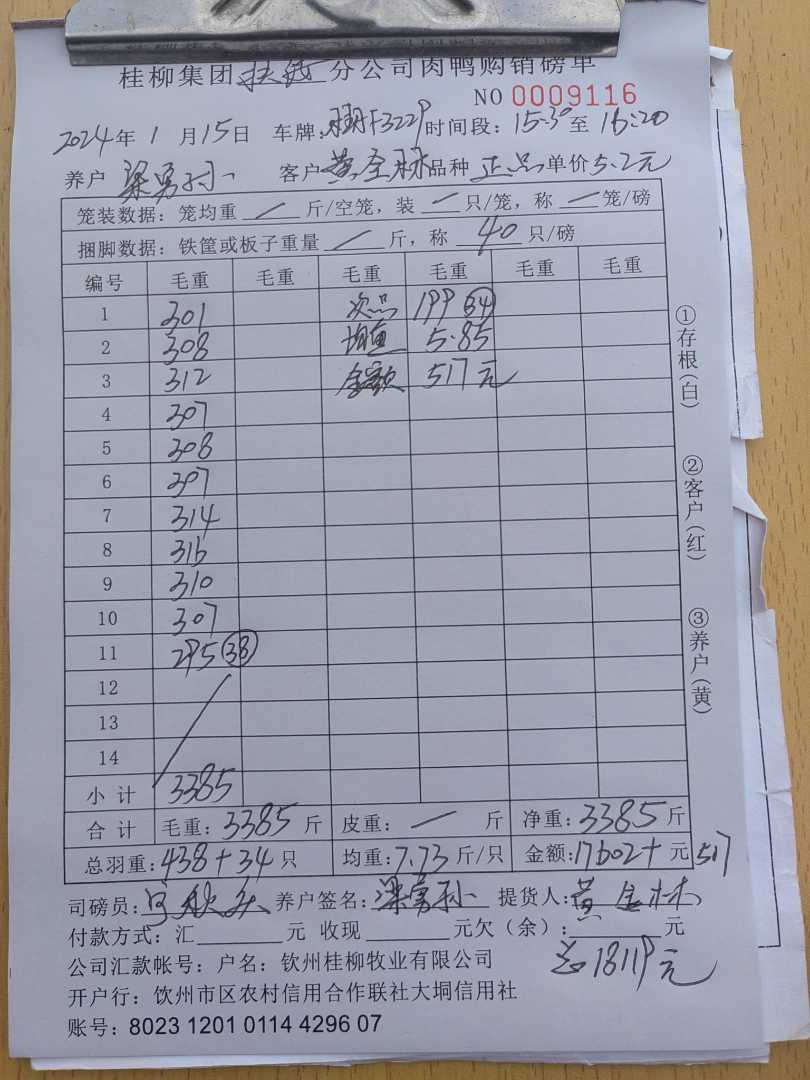 桂柳集团 扶绥 分公司肉鸭购销磅单
NO 0009116
2024年 1 月 15日 车牌: F3229 时间段: 15:30 至 16:20
养户 梁勇孙 客户 黄金林 品种 正品 单价 5.2元
笼装数据: 笼均重 / 斤/空笼, 装 / 只/笼, 称 / 笼/磅
捆脚数据: 铁筐或板子重量 / 斤, 称 40 只/磅
编号 毛重 毛重 毛重 毛重 毛重 毛重
1 301 次品 199 (34)
2 308 均重 5.85
3 312 金额 517元
4 307
5 308
6 307
7 314
8 316
9 310
10 307
11 295 (38)
12
13
14
小计 3385
合计 毛重: 3385 斤 皮重: / 斤 净重: 3385 斤
总羽重: 438+34 只 均重: 7.73 斤/只 金额: 17602+ 元 517
司磅员: 养户签名: 梁勇孙 提货人: 黄金林
付款方式: 汇 元 收现 元欠(余): 元
公司汇款帐号: 户名: 钦州桂柳牧业有限公司
总18119元
开户行: 钦州市区农村信用合作联社大垌信用社
账号: 8023 1201 0114 4296 07
①存根(白)
②客户(红)
③养户(黄)